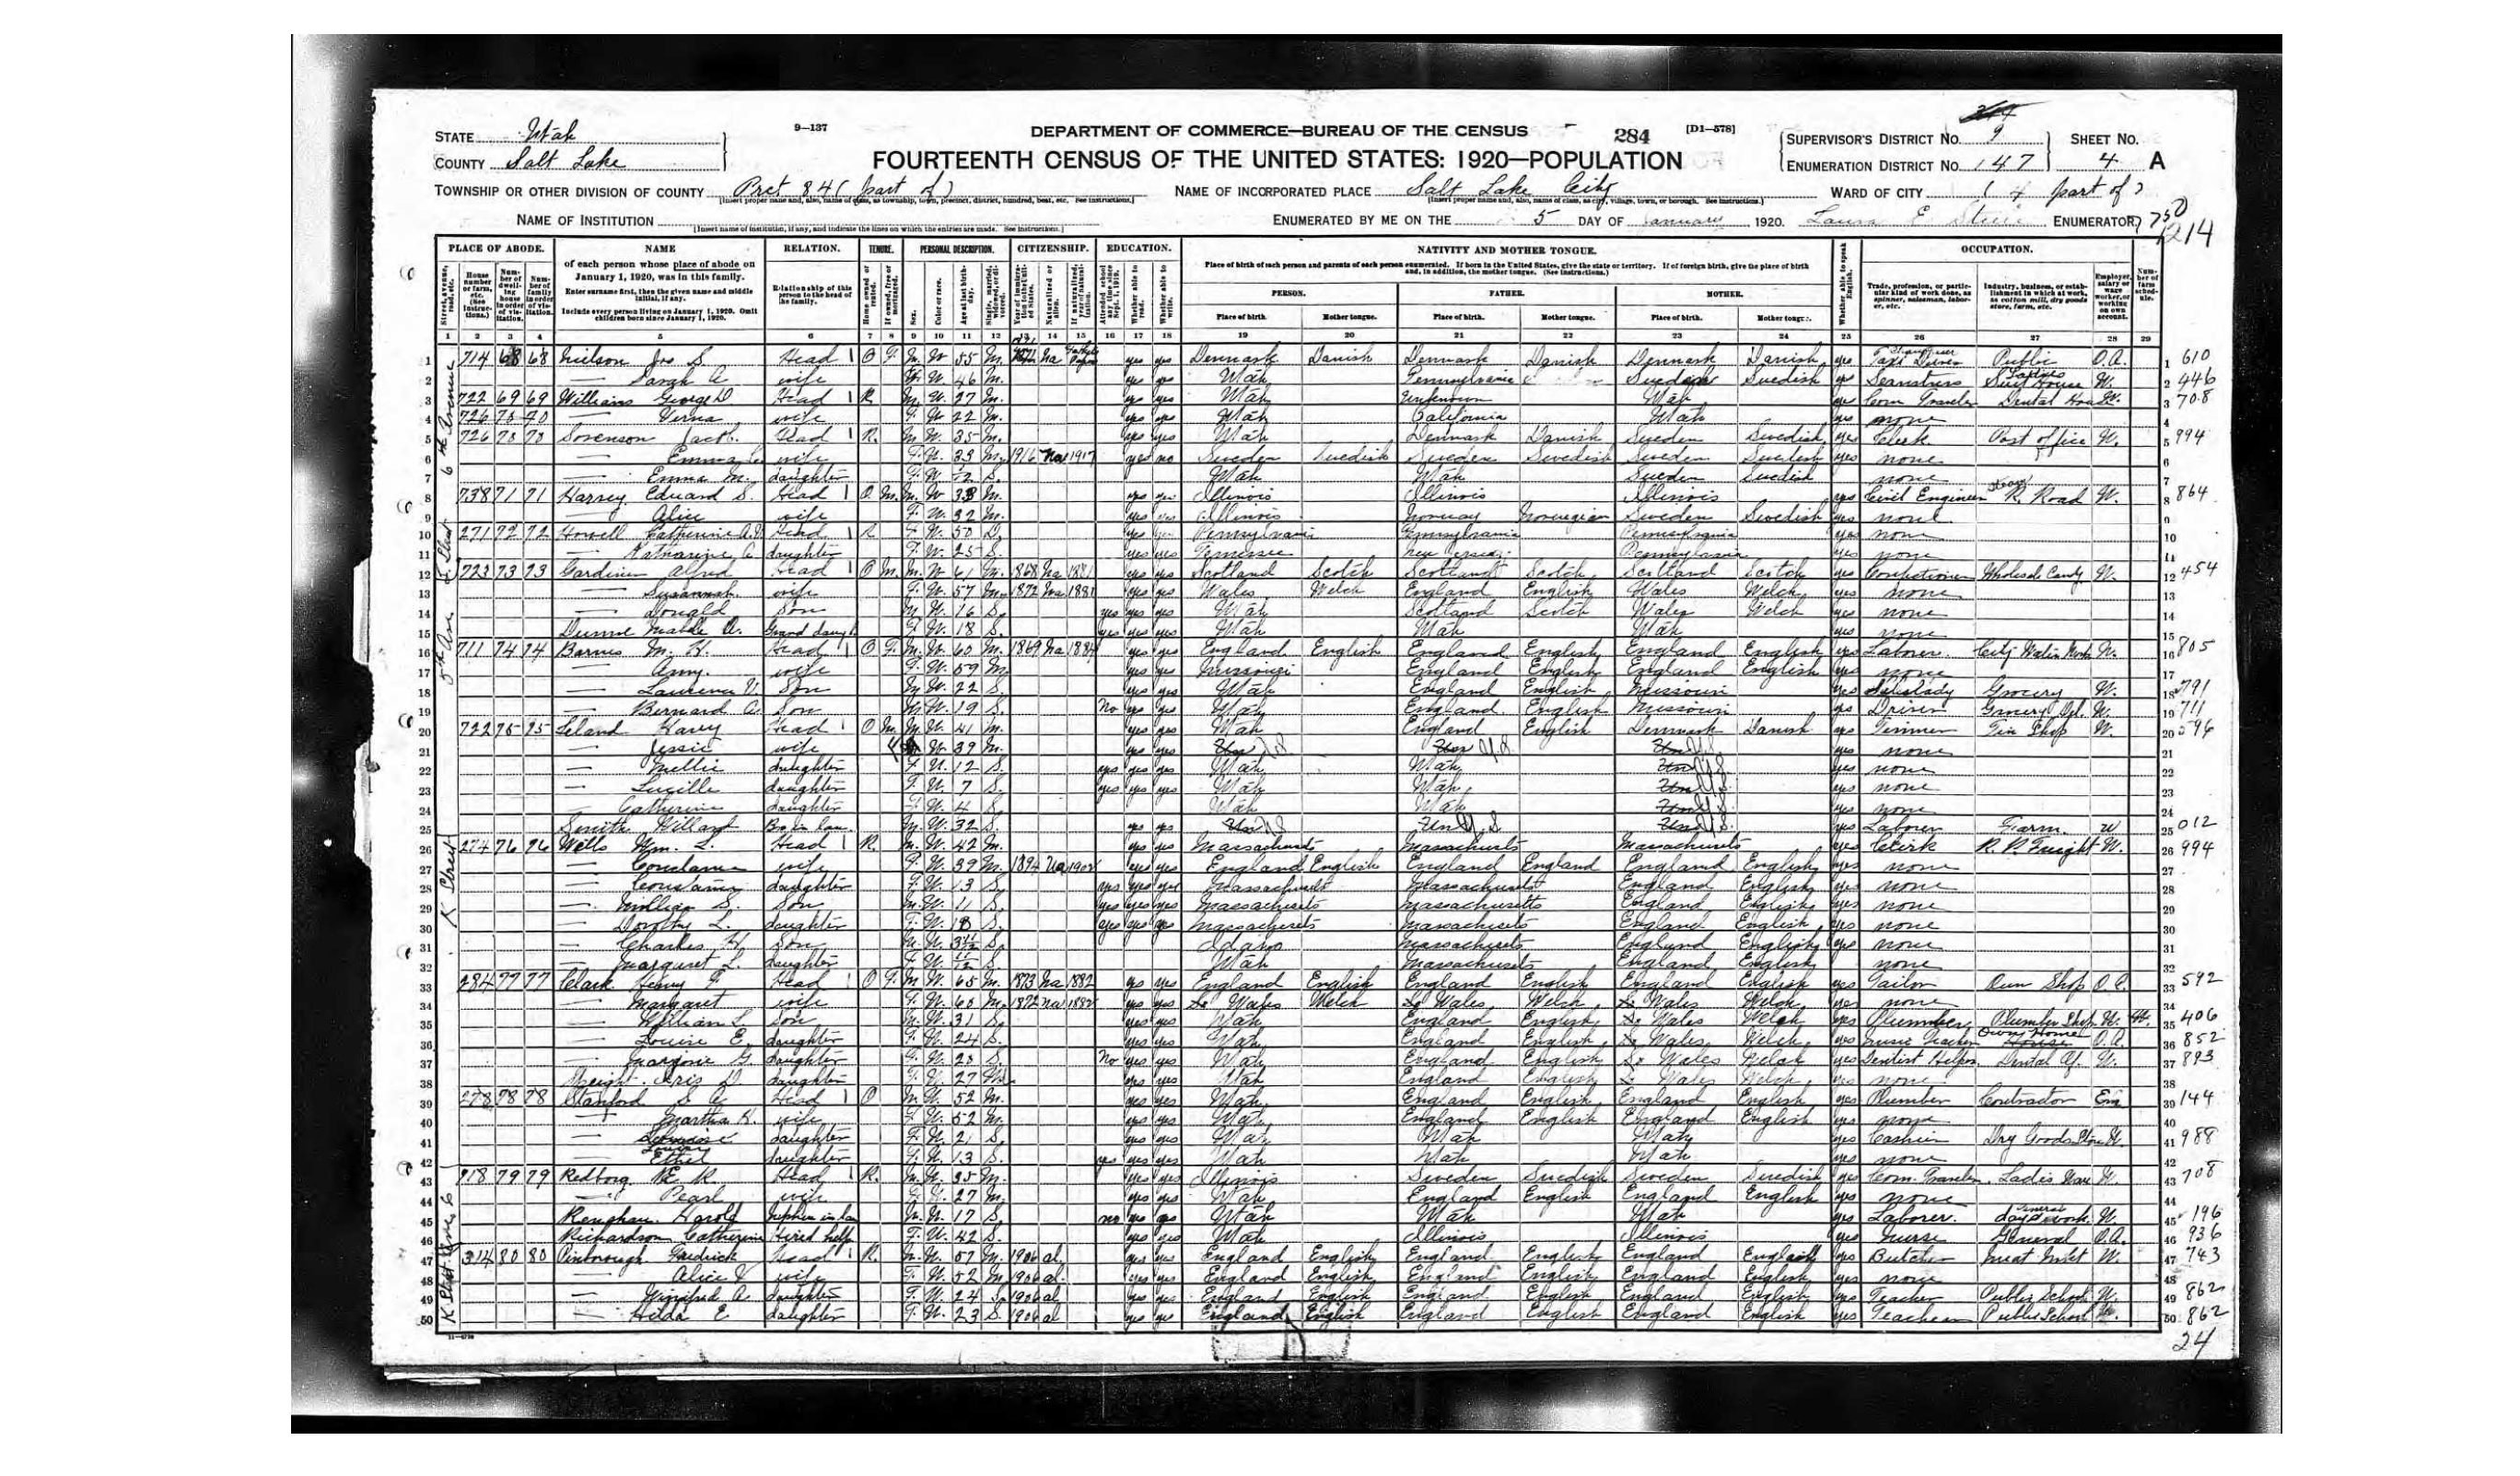 STATE Utah
COUNTY Salt Lake
9—137
DEPARTMENT OF COMMERCE—BUREAU OF THE CENSUS
284 [D1-578]
FOURTEENTH CENSUS OF THE UNITED STATES: 1920—POPULATION
SUPERVISOR'S DISTRICT No. 9
ENUMERATION DISTRICT No. 147
SHEET No. 4 A
TOWNSHIP OR OTHER DIVISION OF COUNTY Prct 84 (part of)
NAME OF INCORPORATED PLACE Salt Lake City
WARD OF CITY (4 part of)
NAME OF INSTITUTION
ENUMERATED BY ME ON THE 5 DAY OF January 1920. Laura E ENUMERATOR
750
1214
PLACE OF ABODE. NAME RELATION. TENURE. PERSONAL DESCRIPTION. CITIZENSHIP. EDUCATION. NATIVITY AND MOTHER TONGUE. OCCUPATION.
of each person whose place of abode on January 1, 1920, was in this family.
Enter surname first, then the given name and middle initial, if any.
Include every person living on January 1, 1920. Omit children born since January 1, 1920.
Relationship of this person to the head of the family.
Place of birth of each person and parents of each person enumerated. If born in the United States, give the state or territory. If of foreign birth, give the place of birth and, in addition, the mother tongue. (See instructions.)
PERSON. FATHER. MOTHER.
Place of birth. Mother tongue. Place of birth. Mother tongue. Place of birth. Mother tongue.
1 2 3 4 5 6 7 8 9 10 11 12 13 14 15 16 17 18 19 20 21 22 23 24 25 26 27 28 29
1 714 68 68 Nielson Jos S. Head O F M W 55 M Na yes yes Denmark Danish Denmark Danish Denmark Danish yes Taxi Driver Public O.A. 1 610
2 — Sarah A wife F W 46 M yes yes Utah Pennsylvania Sweden Swedish yes Seamstress W. 2 446
3 722 69 69 Williams George D Head R M W 27 M yes yes Utah Unknown Utah yes Com Traveler Dental House W. 3 708
4 726 70 70 — Verna wife F W 22 M yes yes Utah California Utah yes none 4
5 726 70 70 Sorenson Jacob. Head R. M W. 35 M. yes yes Utah Denmark Danish Sweden Swedish yes Clerk Post office W. 5 994
6 Emma C. wife F. W. 29 M. 1916 Na 1917 yes no Sweden Swedish Sweden Swedish Sweden Swedish yes none 6
7 — Emma M. daughter F. W S. Utah Utah Sweden Swedish none 7
8 738 71 71 Edward S. Head O. M. M. W 38 M. yes yes Illinois Illinois Illinois yes Civil Engineer R. Road W. 8 864
9 — Alice wife F. W. 32 M. yes yes Illinois Norway Norwegian Sweden Swedish yes none 9
10 271 72 72 Howell Catherine Head R F W. 50 D. yes Pennsylvania Pennsylvania Pennsylvania yes none 10
11 — Katharine C daughter F. W. 25 S. yes yes Tennessee New Jersey Pennsylvania yes none 11
12 723 73 73 Gardiner Alfred Head O M. M. W 61 M. 1868 Na 1881 yes yes Scotland Scotch Scotland Scotch Scotland Scotch yes Confectioner Wholesale Candy W. 12 454
13 — Susannah wife F. W. 57 M. 1872 Na 1881 yes yes Wales Welch England English Wales Welch yes none 13
14 — Donald Son M. W. 16 S. yes yes yes Utah Scotland Scotch Wales Welch yes none 14
15 Mable A. Grand daugt F. W. 18 S. yes yes yes Utah Utah Utah yes none 15
16 711 74 74 Barnes M. H. Head O F. M. W. 60 M. 1869 Na 1884 yes yes England English England English England English yes Laborer City Water Works W. 16 805
17 — Amy. wife F. W. 59 M yes yes Missouri England English England English yes none 17
18 — Laurence V. Son M W. 22 S. yes yes Utah England English Missouri yes Saleslady Grocery W. 18 791
19 — Bernard A Son M W. 19 S. No yes yes Utah England English Missouri yes Driver Grocery W. 19 711
20 722 75 75 Leland Harry Head O M. M. W. 41 M. yes yes Utah England English Denmark Danish yes Tinner Tin Shop W. 20 596
21 — Jessie wife W. 39 M. yes yes U.S. U.S. U.S. yes none 21
22 — Nellie daughter F W. 12 S. yes yes yes Utah Utah U.S. yes none 22
23 — Lucille daughter F. W. 7 S. yes yes yes Utah Utah U.S. yes none 23
24 — Catherine daughter F. W. 4 S. Utah Utah U.S. yes none 24
25 Smith Willard Bro in law. M. W. 32 S. yes yes U.S U.S U.S. yes Laborer Farm. W 25 012
26 274 76 76 Wells Wm. L. Head R. M. W. 42 M. yes yes Massachusetts Massachusetts Massachusetts yes Clerk R. R. Freight W. 26 994
27 — Constance wife F. W. 39 M. 1894 Na 1902 yes yes England English England England England English yes none 27
28 — Constance daughter F. W. 13 S. yes yes yes Massachusetts Massachusetts England English yes none 28
29 — William S. Son M. W. 11 S. yes yes yes Massachusetts Massachusetts England English yes none 29
30 — Dorothy L. daughter F. W. 8 S. yes yes yes Massachusetts Massachusetts England English yes none 30
31 — Charles H Son M. W. S. Idaho Massachusetts England English yes none 31
32 — Margaret L. daughter F. W. S. Utah Massachusetts England English none 32
33 284 77 77 Clark Henry F Head O F. M W. 65 M. 1873 Na 1882 yes yes England English England English England English yes Tailor Own Shop O.A. 33 592
34 — Margaret wife F. W. 60 M. 1872 Na 1882 yes yes Wales Welch Wales Welch Wales Welch yes none 34
35 — William L. Son M. W. 31 S. yes yes Utah England English Wales Welch yes Plumber Plumber Shop W. 35 406
36 — Louise E. daughter F. W. 24 S. yes yes Utah England English Wales Welch yes Music Teacher Own Home O.A. 36 852
37 — Marjorie G. daughter F. W. 20 S. No yes yes Utah England English Wales Welch yes Dentist Helper Dental Of. W. 37 893
38 Speight Iris D. daughter F. W. 27 yes yes Utah England English Wales Welch yes none 38
39 278 78 78 Stanford S A Head O M W. 52 M. yes yes Utah England English England English yes Plumber Contractor Em 39 144
40 Martha H. wife F W. 52 M. yes yes Utah England English England English yes none 40
41 — daughter F. W. 21 S. yes yes Utah Utah Utah yes Cashier Dry Goods Store W. 41 988
42 — Ethel daughter F. W. 13 S. yes yes yes Utah Utah Utah yes none 42
43 718 79 79 Redborg E R. Head R. M. W. 35 M. yes yes Illinois Sweden Swedish Sweden Swedish yes Com. Traveler Ladies Ware W. 43 708
44 — Pearl wife F. W. 27 M. yes yes Utah England English England English yes none 44
45 Harold M. W. 17 S. no yes yes Utah Utah Utah yes Laborer. W. 45 196
46 Richardson Catherine Hired help F. W. 42 S. yes yes Utah Illinois Illinois yes Nurse General O.A. 46 936
47 314 80 80 Pinborough Fredrick Head R. M. W. 57 M. 1906 al. yes yes England English England English England English yes Butcher Meat Mrkt W. 47 743
48 Alice V wife F. W. 52 M 1906 al. yes yes England English England English England English yes none 48
49 — Winifred A daughter F. W. 24 S. 1906 al yes yes England English England English England English yes Teacher Public School W. 49 862
50 — Hilda E daughter F. W. 23 S. 1906 al yes yes England English England English England English yes Teacher Public School W. 50 862
24